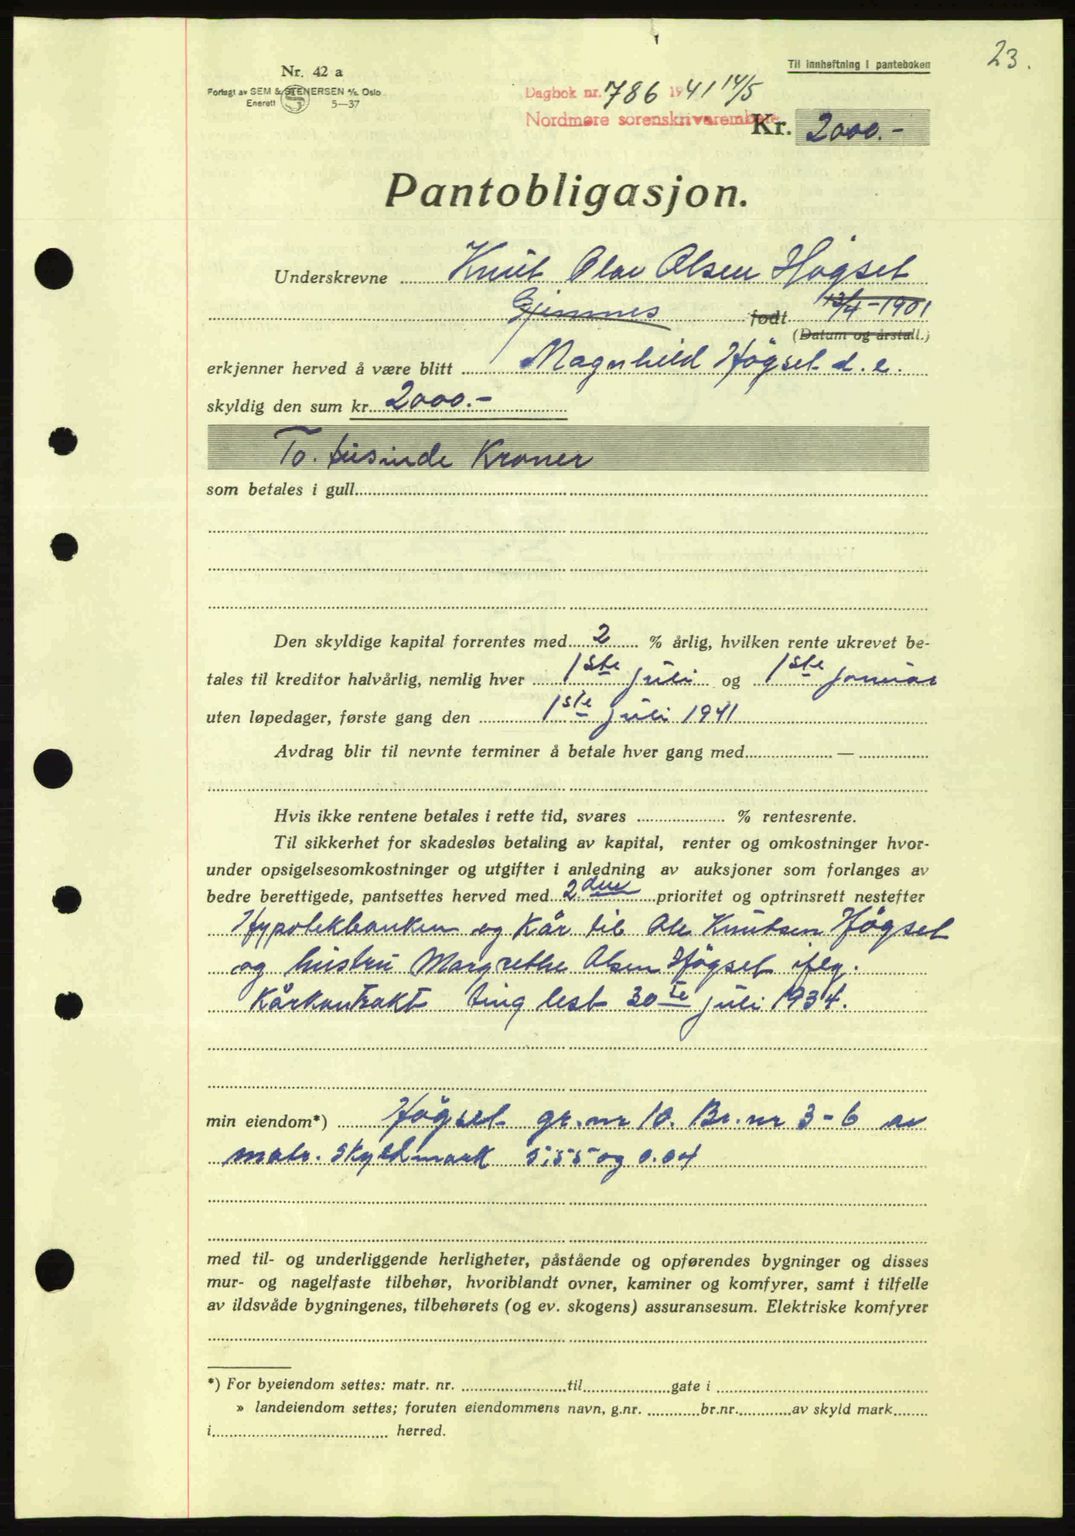 23.
Nr. 42 a
Forlagt av SEM & STENERSEN A/S, Oslo
Enerett 5—37
Til innheftning i panteboken
Dagbok nr. 786 1941 14/5
Nordmøre sorenskriverembete
Kr. 2000.-
Pantobligasjon.
Underskrevne Knut Olav Olsen Högset
Gjemnes født 13/4-1901
(Datum og årstall.)
erkjenner herved å være blitt Magnhild Högset d. e.
skyldig den sum kr. 2000.-
To tusinde Kroner
som betales i gull
Den skyldige kapital forrentes med 2 % årlig, hvilken rente ukrevet be-
tales til kreditor halvårlig, nemlig hver 1ste juli og 1ste januar
uten løpedager, første gang den 1ste juli 1941
Avdrag blir til nevnte terminer å betale hver gang med —
Hvis ikke rentene betales i rette tid, svares % rentesrente.
Til sikkerhet for skadesløs betaling av kapital, renter og omkostninger hvor-
under opsigelsesomkostninger og utgifter i anledning av auksjoner som forlanges av
bedre berettigede, pantsettes herved med 2den prioritet og optrinsrett nestefter
Hypotekbanken og Kår til Ole Knutsen Högset
og hustru Margrethe Olsen Högset iflg.
Kårkontrakt tinglest 30te juli 1934.
min eiendom*) Högset gr.nr 10. Br.nr 3-6 av
matr. Skyldmark 5,55 og 0.04
med til- og underliggende herligheter, påstående og opførendes bygninger og disses
mur- og nagelfaste tilbehør, hvoriblandt ovner, kaminer og komfyrer, samt i tilfelle
av ildsvåde bygningenes, tilbehørets (og ev. skogens) assuransesum. Elektriske komfyrer
*) For byeiendom settes: matr. nr. til gate i
» landeiendom settes; foruten eiendommens navn, g.nr. br.nr. av skyld mark
i herred.